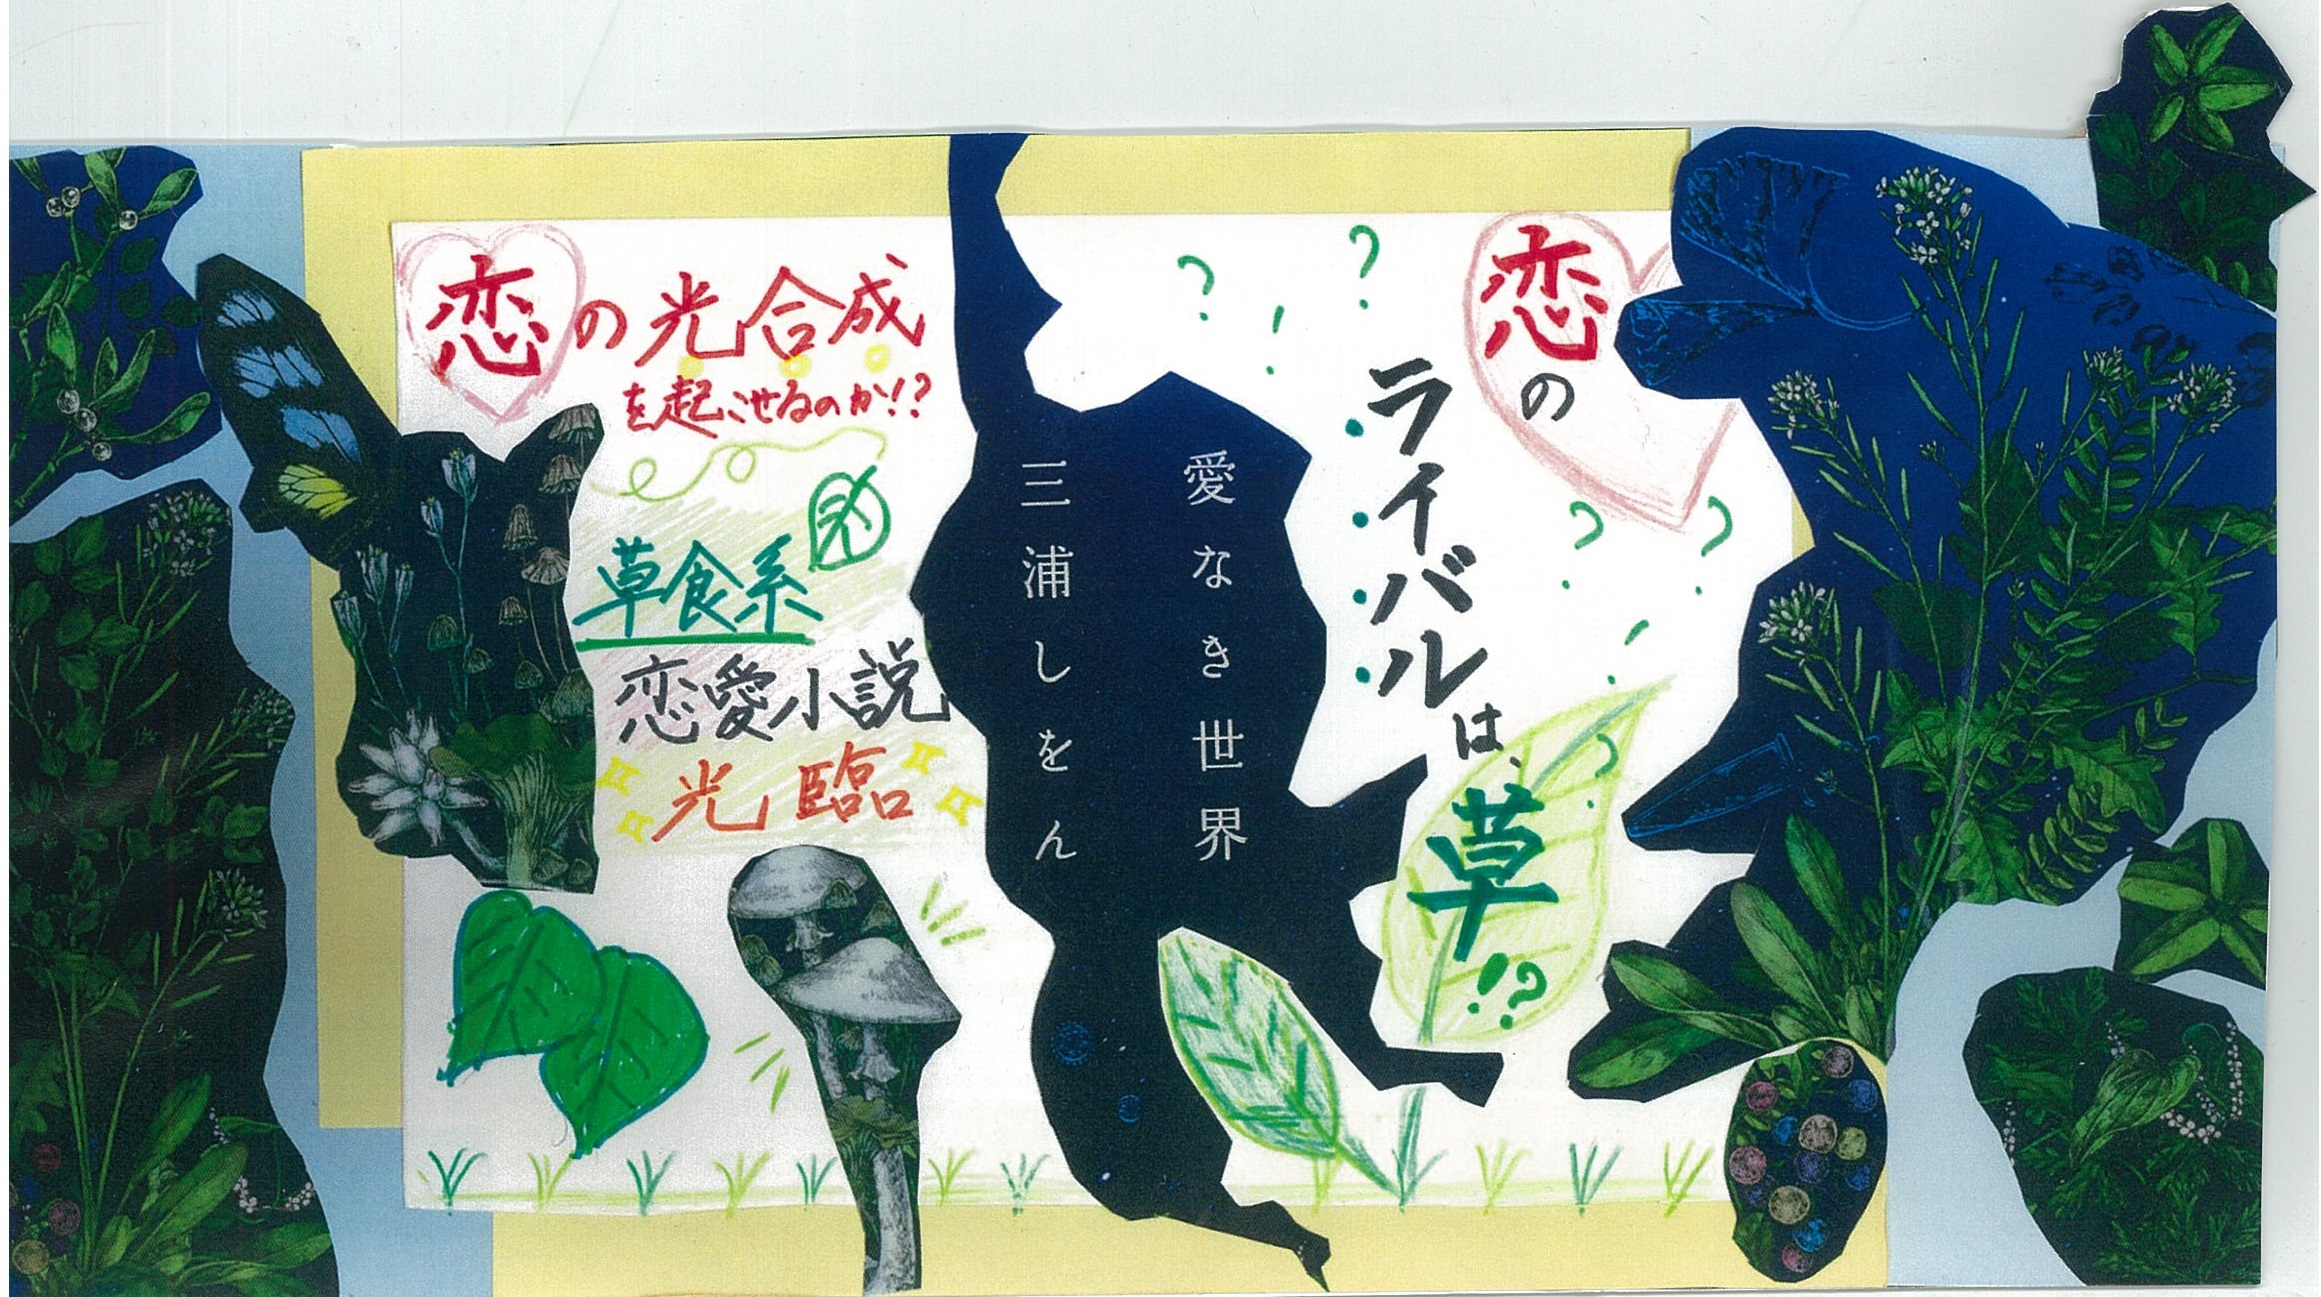 恋の
ライバルは、
草!?
愛なき世界
三浦しをん
恋の光合成
を起こせるのか!?
草食系
恋愛小説
光臨